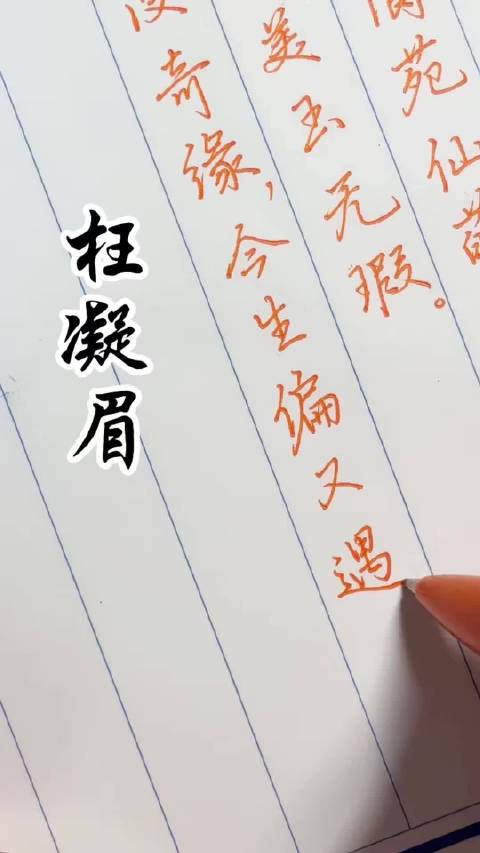 苑仙
美玉无瑕。
奇缘，今生偏又遇
枉凝眉